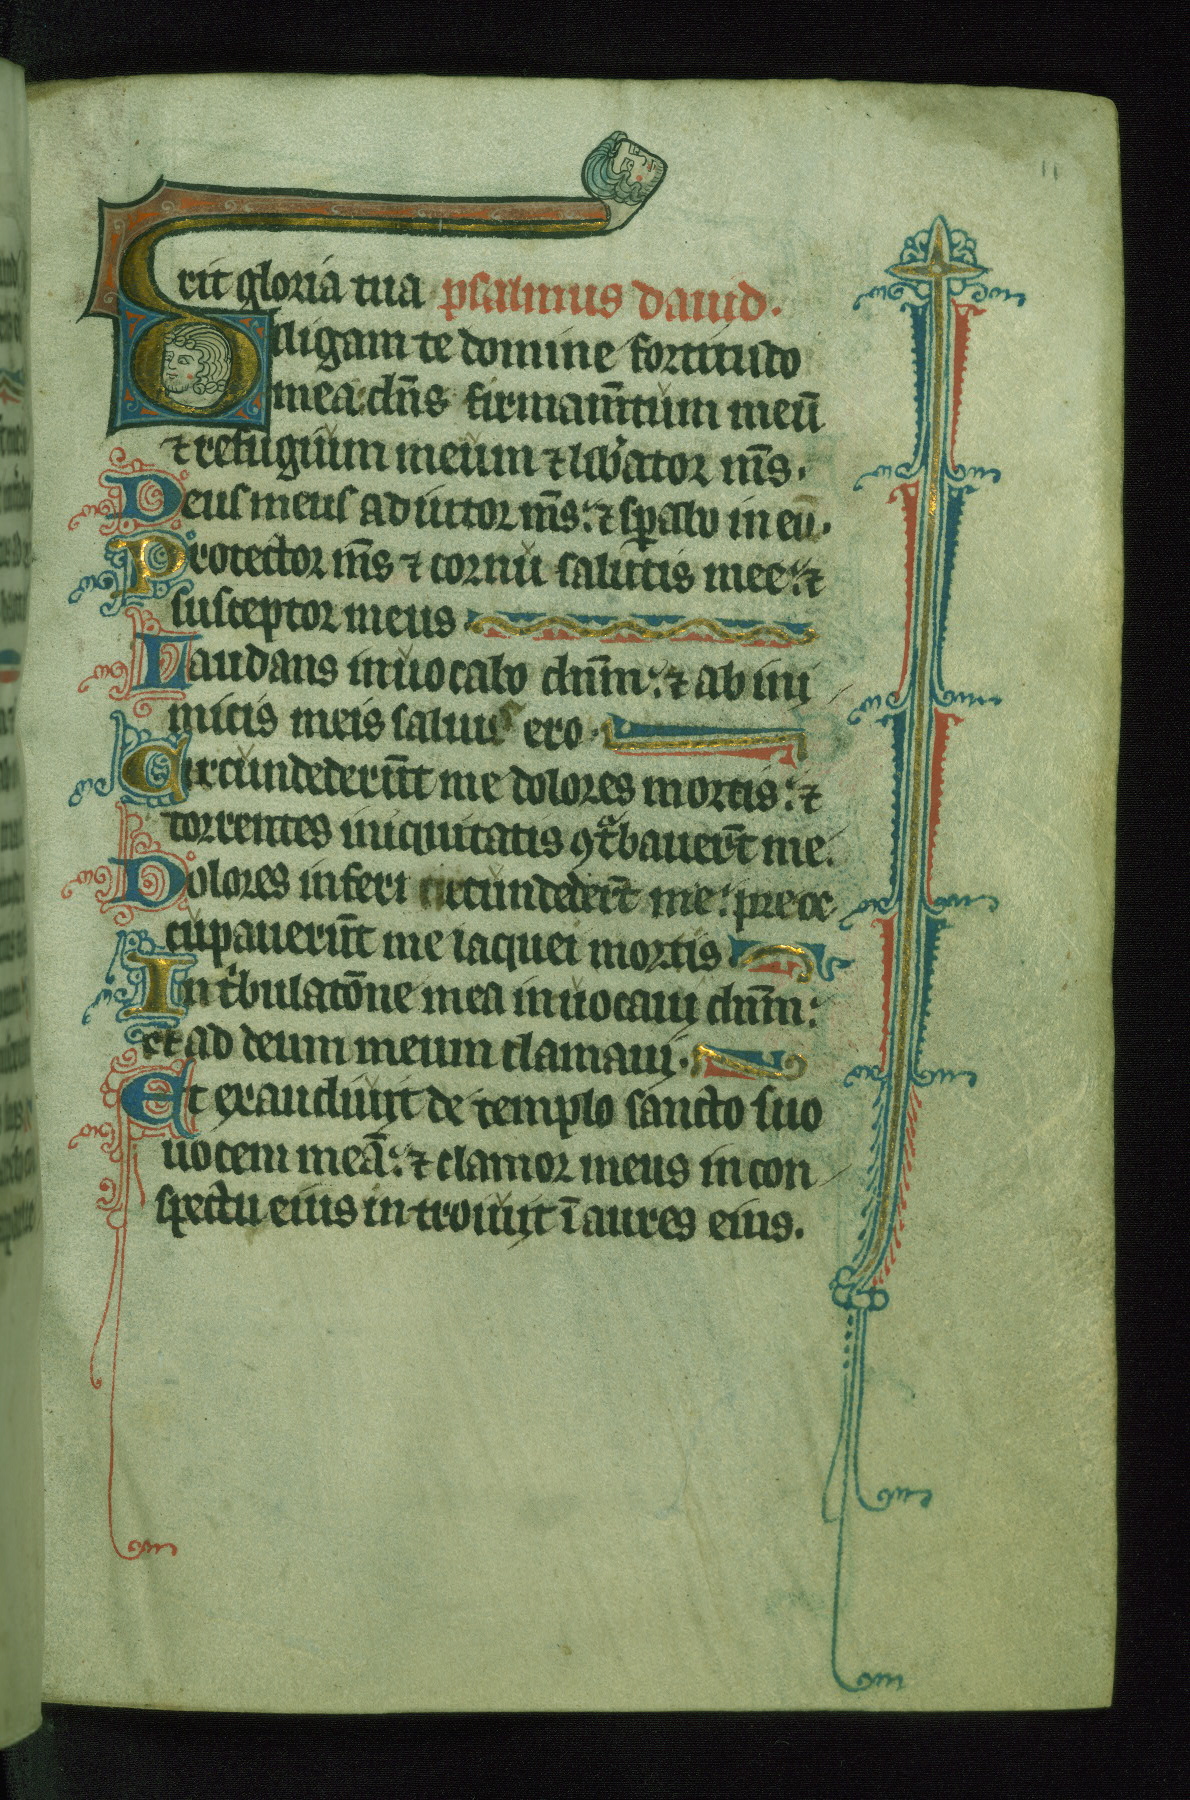 11
rit gloria tua psalmus dauid.
Diligam te domine fortitudo
mea: dn̄s firmam̄tum meū
⁊ refugium meum ⁊ lib̓ator m̄s.
Deus meus adiutor m̄s: ⁊ sꝑabo in eū.
Protector m̄s ⁊ cornu salutis mee: ⁊
susceptor meus
Laudans inuocabo dn̄m: ⁊ ab ini
micis meis saluus ero.
Circumdederūt me dolores mortis: ⁊
torrentes iniquitatis ꝯt̾bauer̄t me.
Dolores inferi circumdeder̄t me: preoc
cupauerūt me laquei mortis
In t̾bulatōne mea inuocaui dn̄m:
et ad deum meum clamaui.
Et exaudiuit de templo sancto suo
uocem meā: ⁊ clamor meus in con
spectu eius introiuit ī aures eius.